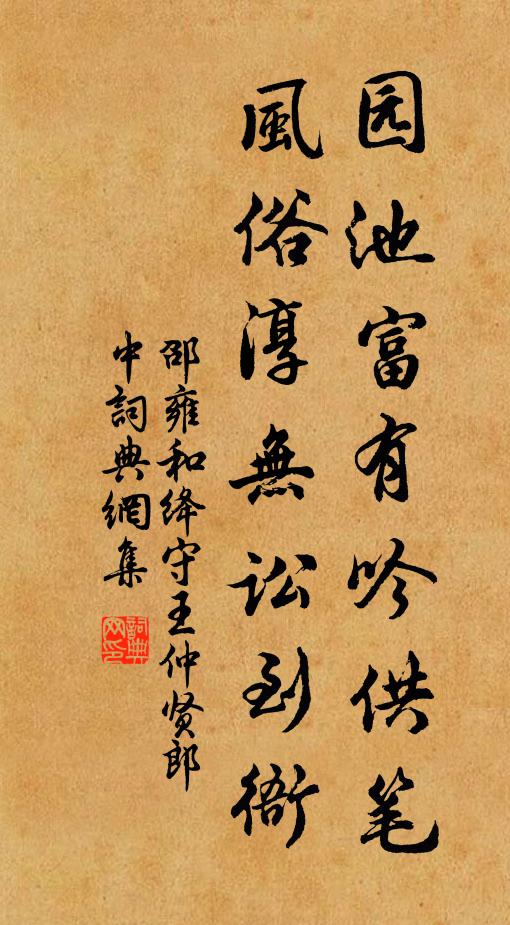 园池富有吟供笔
風俗淳無讼到衙
邵雍和绛守王仲贤郎
中詞典網集
詞典
网印